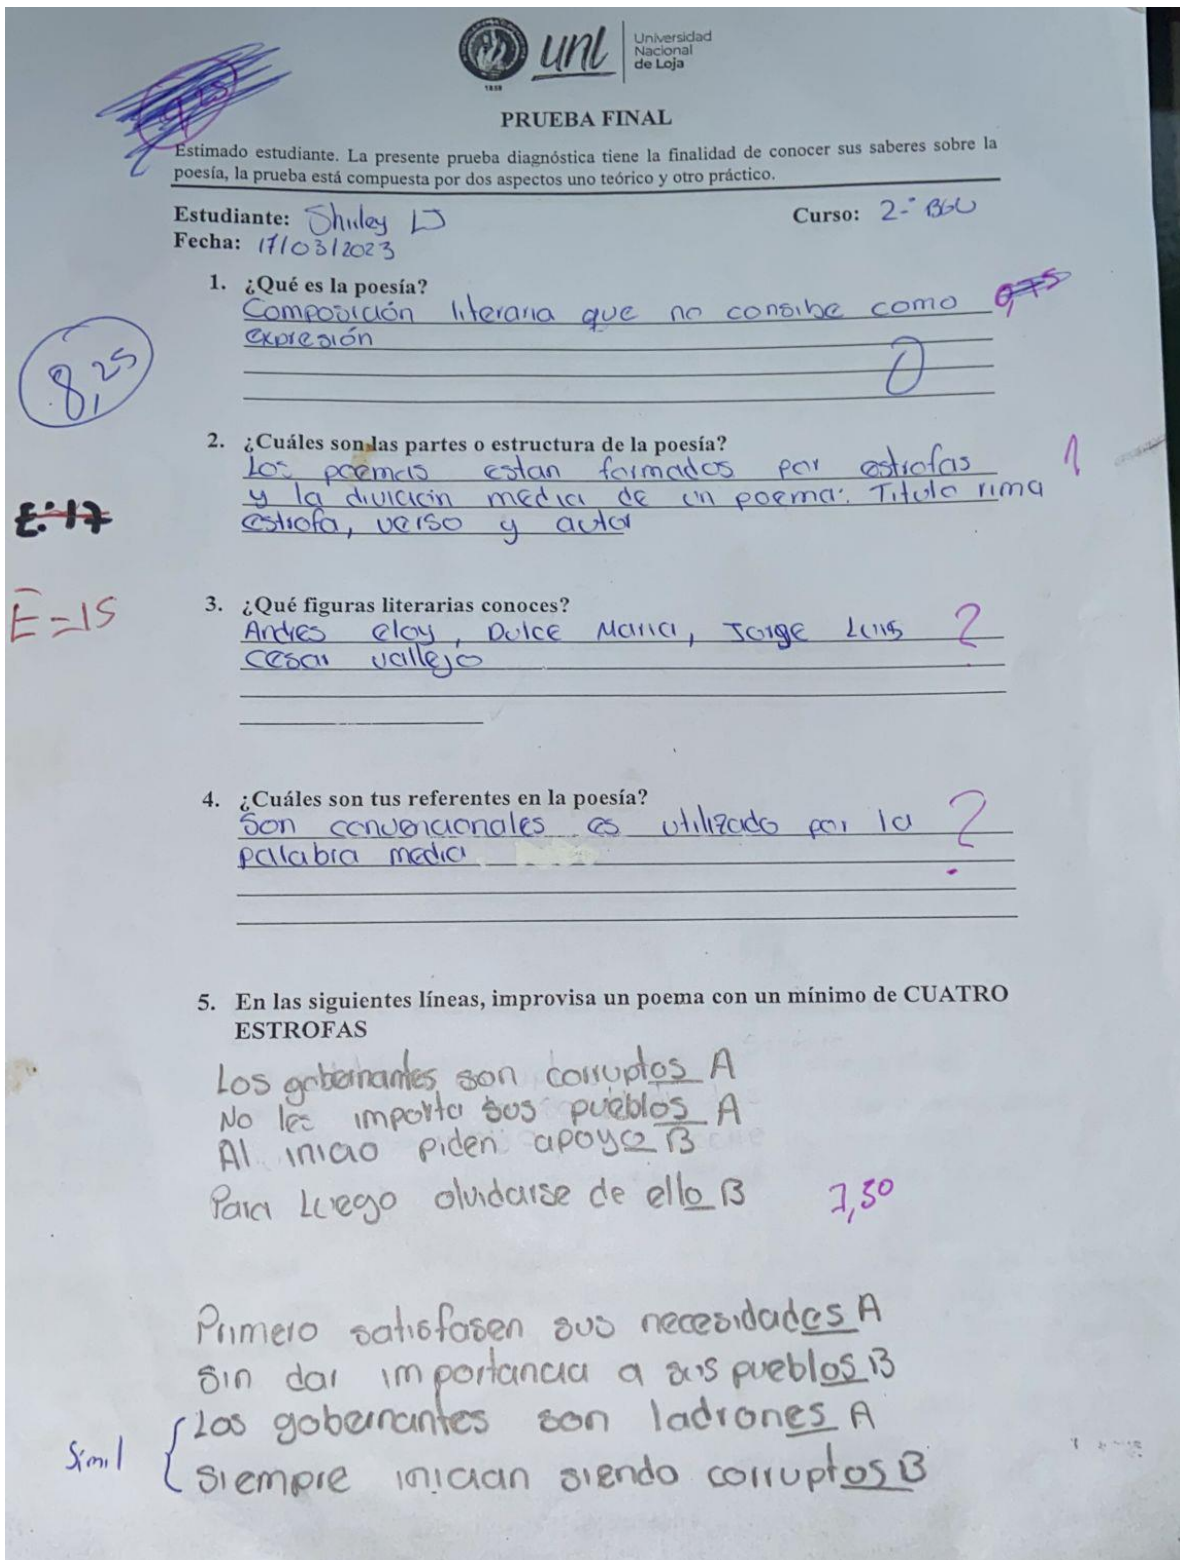 1859
unl
Universidad
Nacional
de Loja
PRUEBA FINAL
Estimado estudiante. La presente prueba diagnóstica tiene la finalidad de conocer sus saberes sobre la
poesía, la prueba está compuesta por dos aspectos uno teórico y otro práctico.
Estudiante: Shirley LJ
Curso: 2-° BGU
Fecha: 17/03/2023
1. ¿Qué es la poesía?
Composición literaria que no consibe como
expresión
0
8,25
2. ¿Cuáles son las partes o estructura de la poesía?
Los poemas estan formados por estrofas 1
y la divición media de un poema: Titulo rima
estrofa, verso y autor
E:17
E=15
3. ¿Qué figuras literarias conoces?
Andres eloy, Dulce Maria, Jorge Luis ?
cesar vallejo
4. ¿Cuáles son tus referentes en la poesía?
Son convencionales es utilizado por la ?
palabra media
5. En las siguientes líneas, improvisa un poema con un mínimo de CUATRO
ESTROFAS
Los gobernantes son corruptos A
No les importa sus pueblos A
Al inicio piden apoyo B
Para Luego olvidarse de ello B
7,50
Primero satisfasen sus necesidades A
Sin dar importancia a sus pueblos B
Los gobernantes son ladrones A
Siempre inician siendo corruptos B
Simil